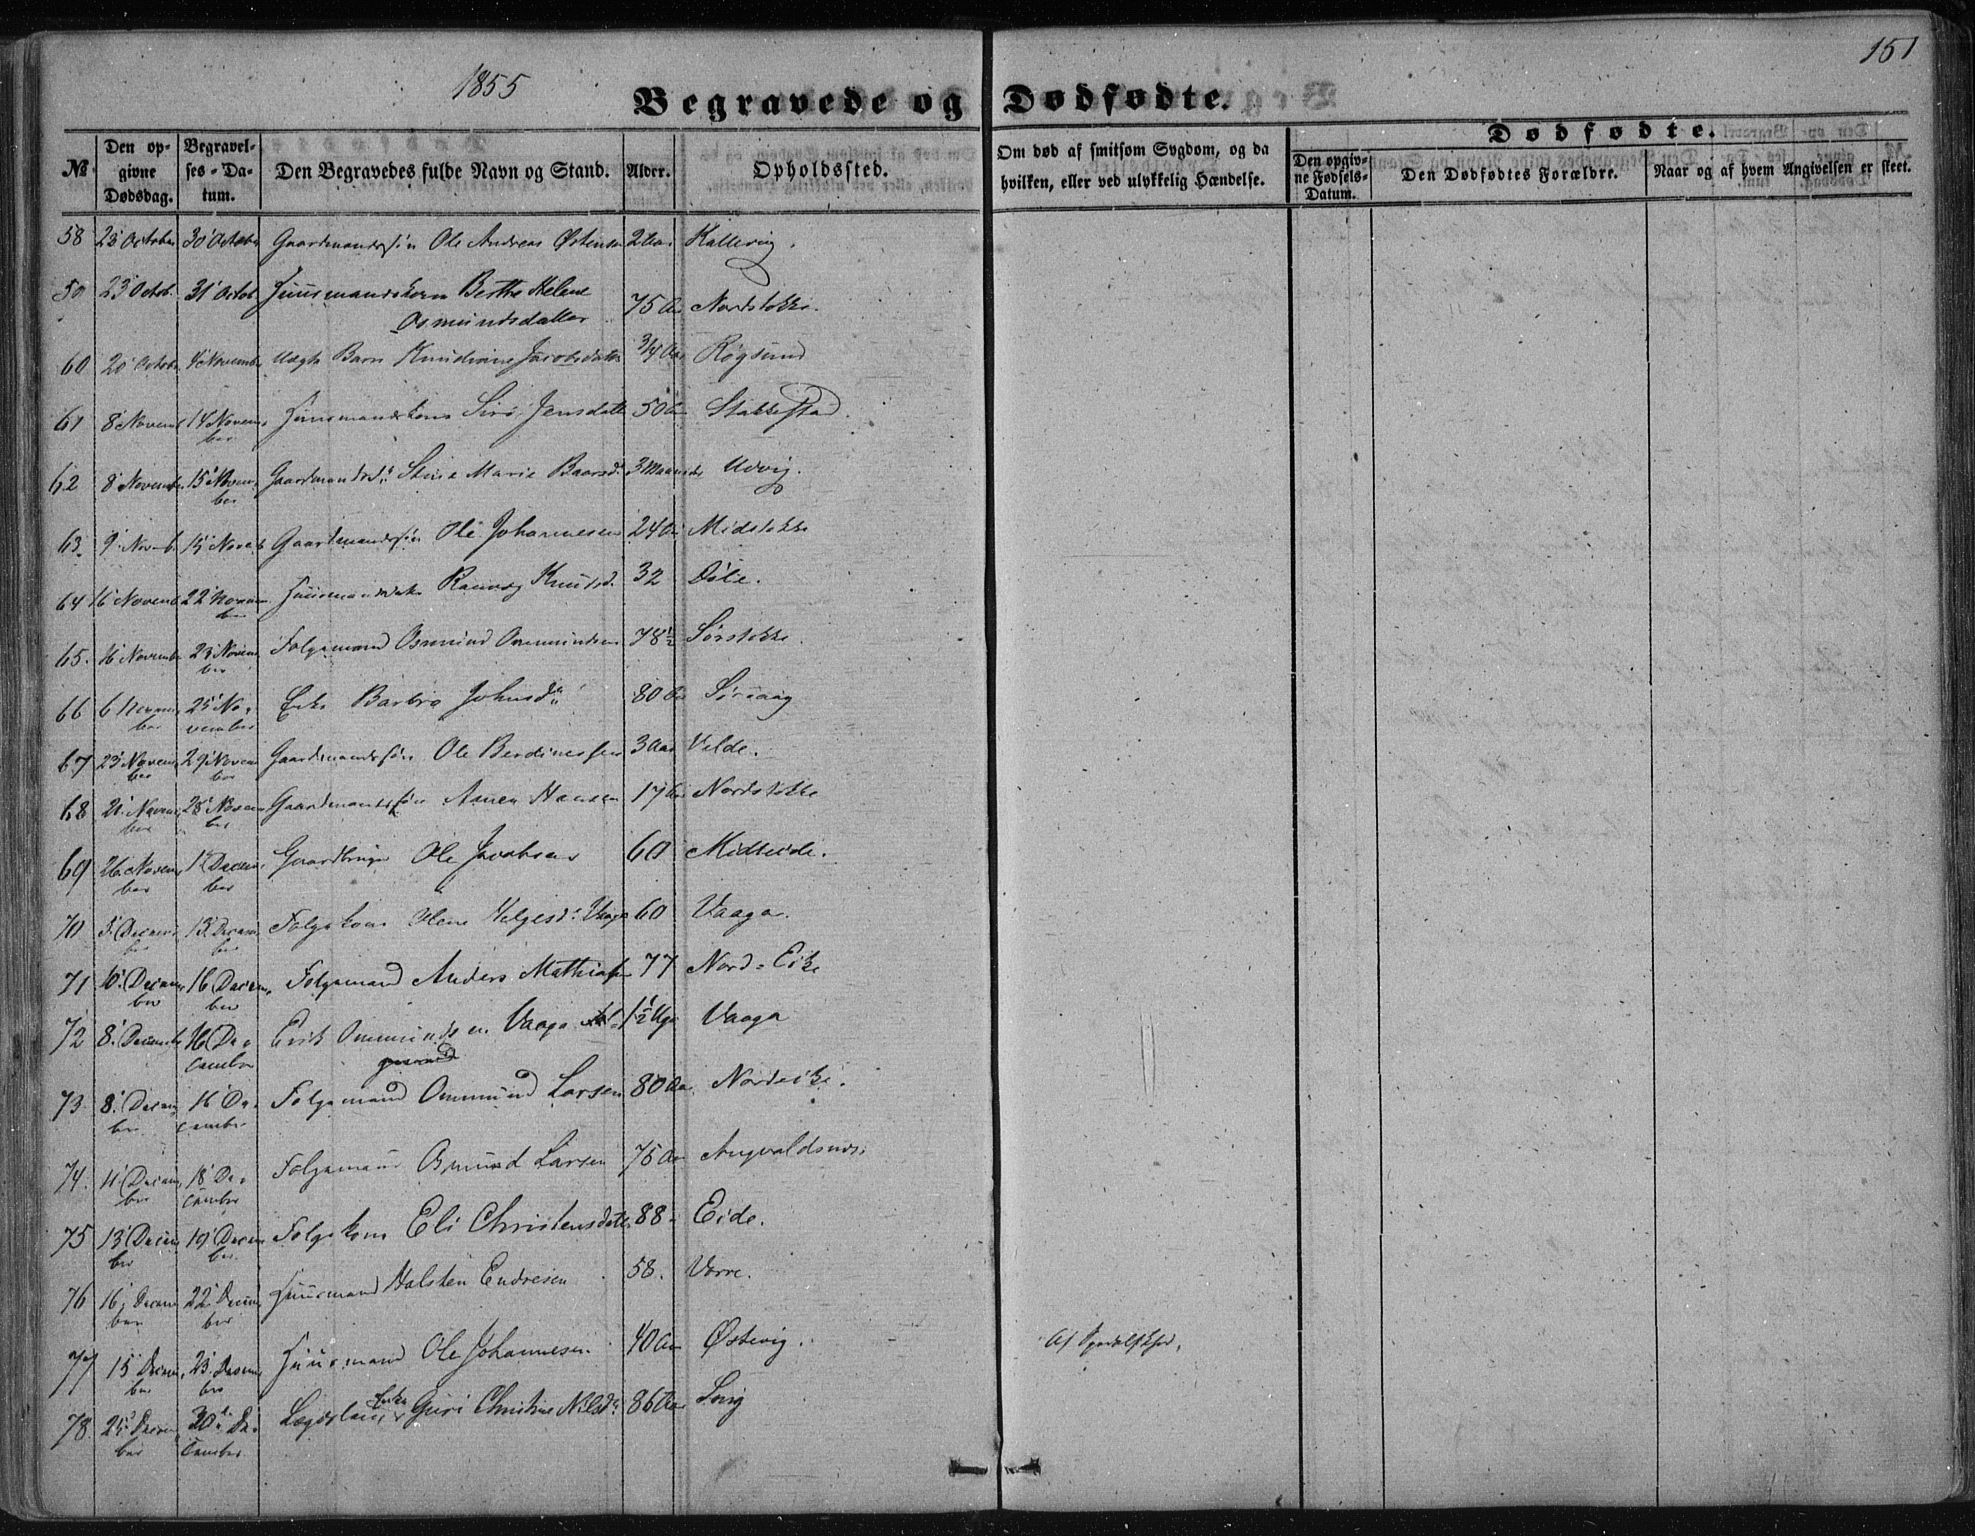 151
1855
Begravede og Dødfødte.
№
Den opgivne Dødsdag.
Begravelses-Datum.
Den Begravedes fulde Navn og Stand.
Alder.
Opholdssted.
Om død af smitsom Sygdom, og da hvilken, eller ved ulykkelig Hændelse.
Dødfødte.
Den opgivne Fødsels-Datum.
Den Dødfødtes Forældre.
Naar og af hvem Angivelsen er skeet.
58 October 30 October Gaardmandssøn Ole Andreas 2 Aar
59 23 Octob. 31 Octob. Huusmandskone Berthe Helene Osmundsdatter 75 Aar Nordstokke.
60 October 4 November Uægte Barn Jacobsdatter 3/4 Aar Røgsund
61 8 Novemb 14 November Huusmandskone Jensdatter 50 Aar Stakkestad.
62 8 November 15 November Gaardmandsd. Stine Marie Baarsd. 3 Maaneder Udvig.
63. 9 Novemb 15 Novemb Gaardmandssøn Ole Johannesen 24 Aar Midstokke
64 16 Novemb 22 November Knudsd. 32
65. 16 November 23 November Folgemand Osmund Ommundsen 78½ Sørstokke.
66 6 November 25 November Enke Barbro Johnsd. 80 Aar
67 23 November 29 November Gaardmandssøn Ole Berdinessen 3 Aar Velde.
68 November 28 November Gaardmandssøn Hansen 17 Aar Nordstokke
69 26 November 1 December Gaardbruger Ole Jacobsen 60 Midteide.
70 December 13 December Folgekone Helgesd. Vaage 60 Vaage.
71 10 December 16 December Folgemand Anders Mathiassen 77 Nord-Eike
72 8 December 16 December Erik Ommundsen Vaage 1½ Uge Vaage
73. 8. December 16 December Folgemand Ommund Larsen 80 Aar. Nordeike.
74. 11 December 18 December Folgemand Osmund Larsen 75 Aar Augvaldsnæs.
75 13 December 19 December Folgekone Eli Christensdatter 88 Eide.
76 16 December 22 December Huusmand Halsten Endresen 58. Vorre.
77 15 December 23 December Huusmand Ole Johannesen 40 Aar Østevig.
78. December 30 December Enke Guri Christine Nilsd. 86 Aar